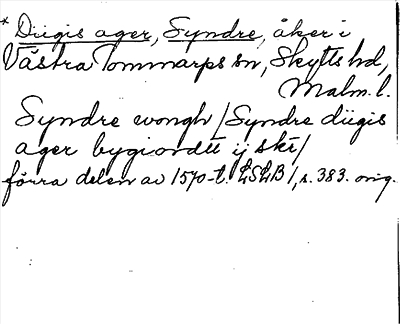 * Diigis ager, Syndre, åker i
Västra Tommarps sn, Skytts hd,
Malm. l.
Syndre wongh / Syndre diigis
ager bygiondtt ij skt /
förra delen av 1570-t. LSLB 1, s. 383. orig.